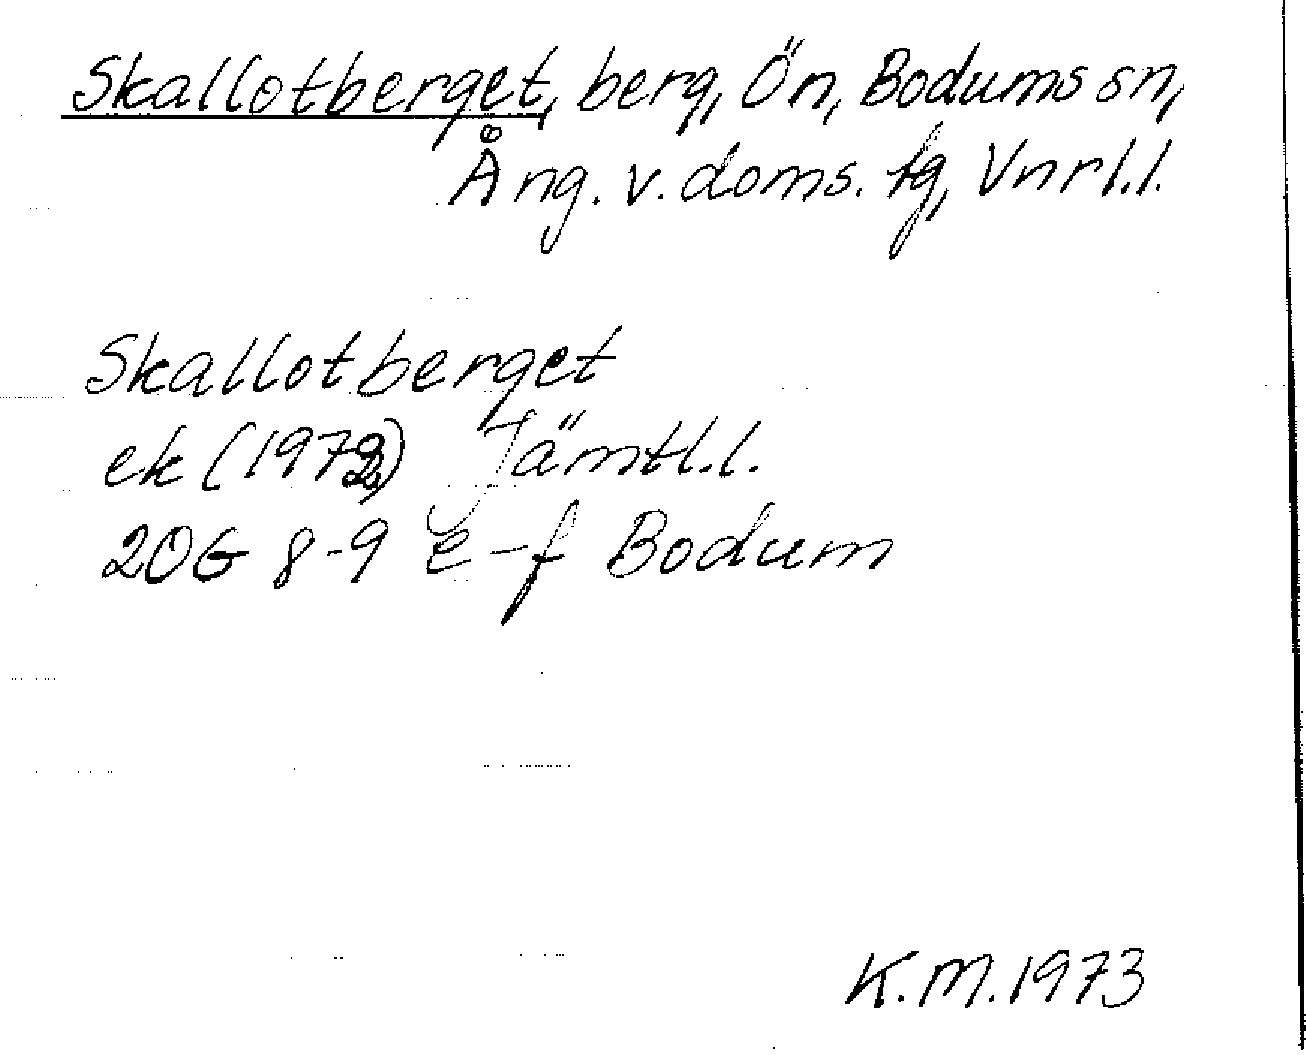 Skallotberget, berg, Ön, Bodums sn,
Ång. v. doms. tg, Vnrl.l.
Skallotberget
ek (1972) Jämtl.l.
20G 8-9 e-f Bodum
K.M. 1973